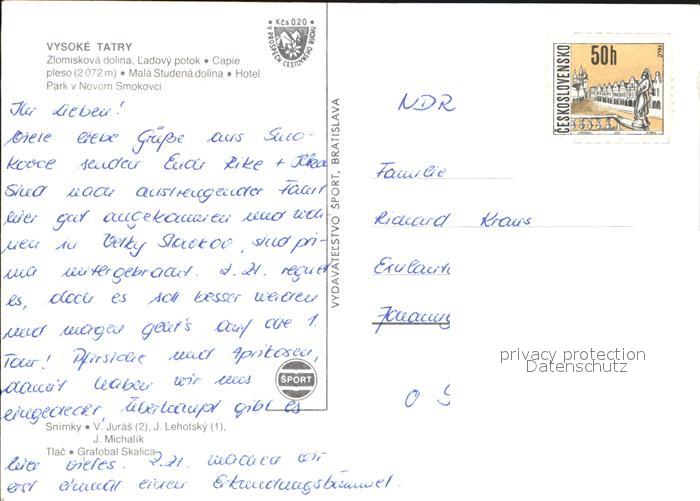 VYSOKÉ TATRY
Zlomisková dolina, Ľadový potok • Capie
pleso (2 072 m) • Malá Studená dolina • Hotel
Park v Novom Smokovci
Kčs 0,20
V PROSPECH CESTOVNÉHO RUCHU
Ihr Lieben!
Viele liebe Grüße aus Smo-
kovce senden Euch Rike +
Sind nach anstrengender Fahrt
hier gut angekommen und woh-
nen in Velky Slavkov, sind pri-
ma untergebracht. Z. Zt. regnet
es, doch es soll besser werden
und morgen geht's auf die 1.
Tour! Pfirsiche und Aprikosen,
damit haben wir uns
eingedeckt, überhaupt gibt es
Snímky • V. Juráš (2), J. Lehotský (1),
J. Michalík
Tlač • Grafobal Skalica
hier vieles. Z. Zt. machen wir
erst einmal einen Erkundungsbummel.
VYDAVATEĽSTVO ŠPORT, BRATISLAVA
ŠPORT
ČESKOSLOVENSKO
50h
TELČ
NDR
Familie
Richard Kraus
O
privacy protection
Datenschutz